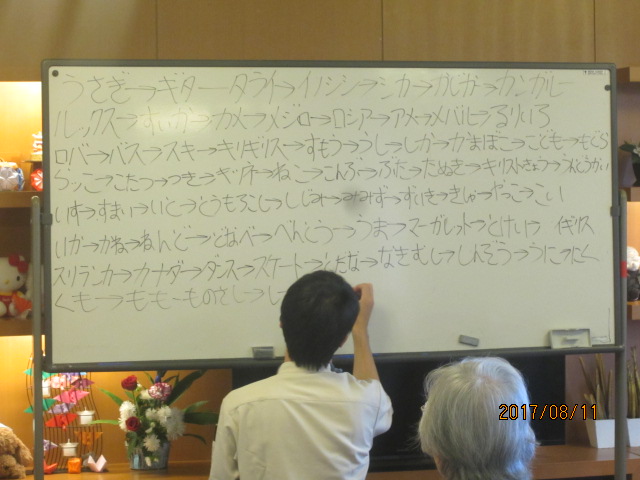 うさぎ→ギター→タライ→イノシシ→シカ→カルガ→カンガルー
ルックス→すいか→カメ→メジロ→ロシア→アメ→メバル→るりいろ
ロバ→バス→スキー→キリギリス→すもう→うし→しか→かまぼこ→こども→もぐら
らっこ→こたつ→つき→キツネ→ねこ→こんぶ→ぶた→たぬき→キリストきょう→
いす→すまい→いと→とうもろこし→しじみ→みみず→ずいき→きゅ→やっこ→こい
いか→かね→ねんど→どなべ→べんとう→うま→マーガレット→とけい→ イギリス
スリランカ→カナダ→ダンス→スケート→とだな→なきむし→しんぞう→うに→にく
くも→もも→ものさし→し
2017/08/11